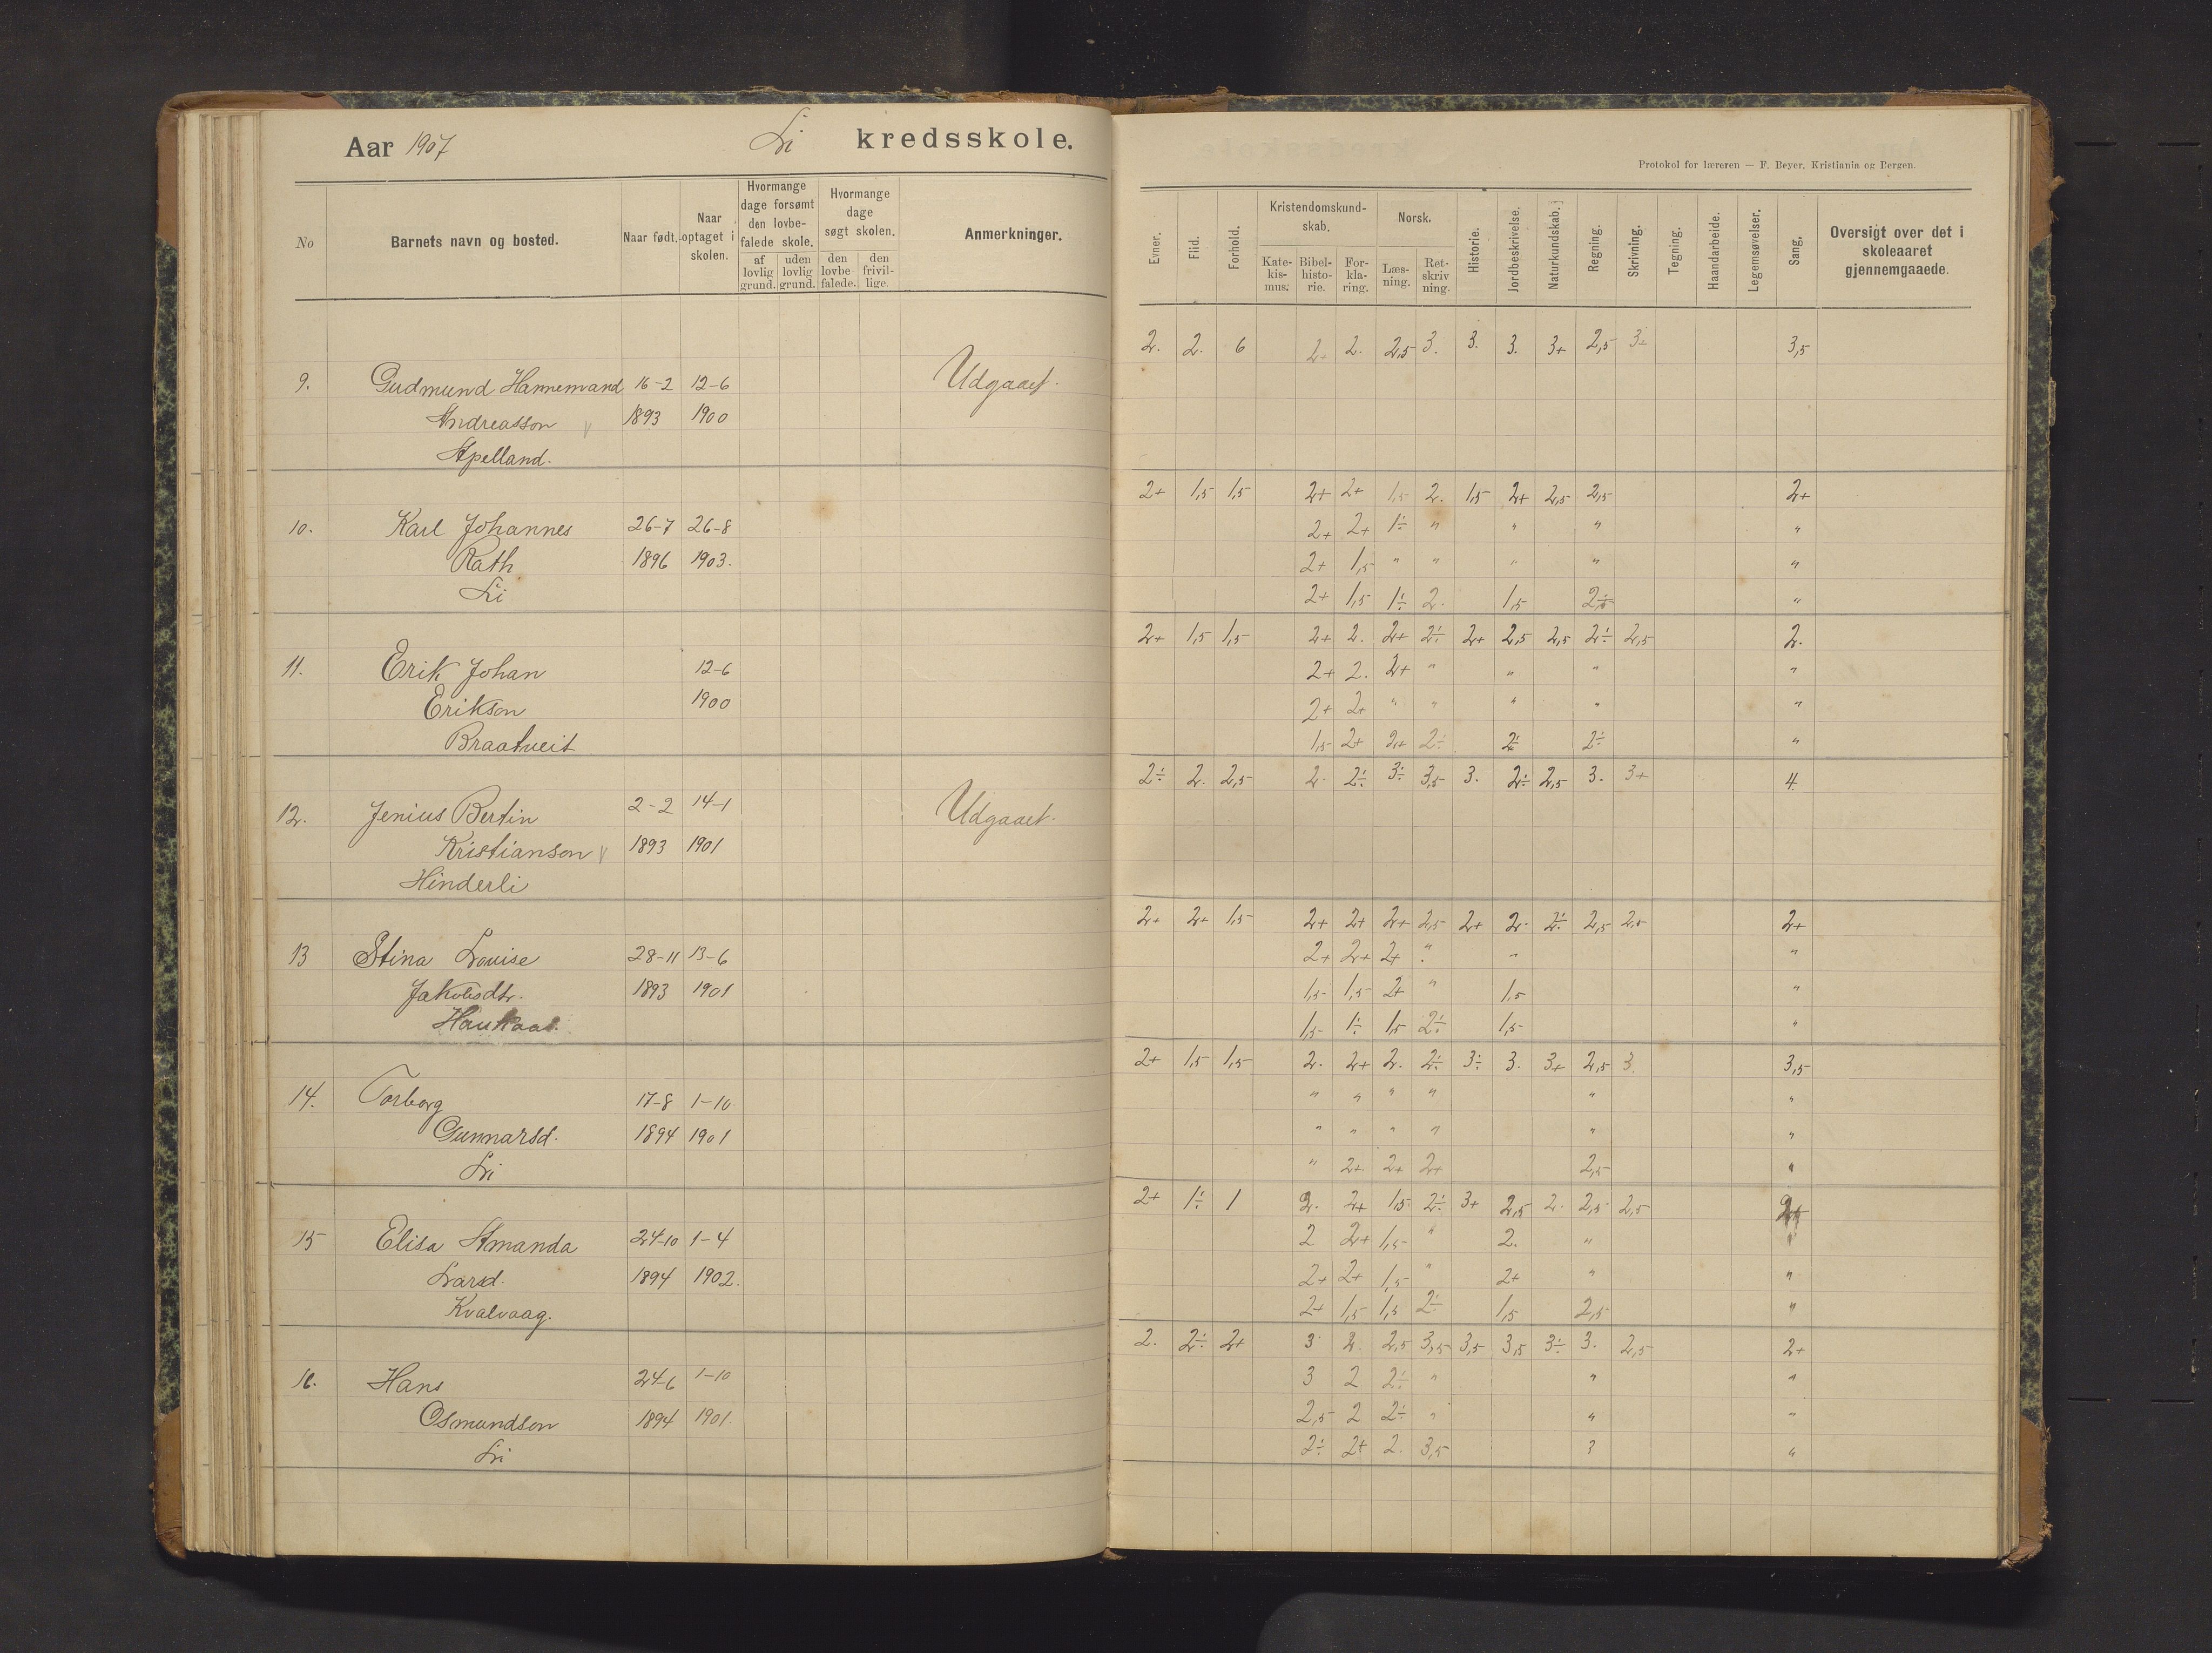 Aar 1907 Li kredsskole.
No Barnets navn og bosted. Naar født. Naar optaget i skolen. Hvormange dage forsømt den lovbefalede skole. af lovlig grund. uden lovlig grund. Hvormange dage søgt skolen. den lovbefalede. den frivillige. Anmerkninger.
9. Gudmund Hannemand 16-2 12-6 Udgaaet.
Andreasson 1893 1900
Apelland.
10. Karl Johannes 26-7 26-8
Rath 1896 1903.
Li
11. Erik Johan 12-6
Erikson 1900
Braatveit
12. Jenius Bertin 2-2 14-1 Udgaaet.
Kristianson 1893 1901
Hinderli
13 Stina Louise 28-11 13-6
Jakobsdtr. 1893 1901
Haukaas.
14. Torborg 17-8 1-10
Gunnarsd. 1894 1901
Li
15 Elisa Amanda 24-10 1-4
Larsd. 1894 1902.
Kvalvaag.
16. Hans 24-6 1-10
Osmundson 1894 1901.
Li
Protokol for læreren — F. Beyer, Kristiania og Bergen.
Evner. Flid. Forhold. Kristendomskundskab. Katekismus. Bibelhistorie. Forklaring. Norsk. Læsning. Retskrivning. Historie. Jordbeskrivelse. Naturkundskab. Regning. Skrivning. Tegning. Haandarbeide. Legemsøvelser. Sang. Oversigt over det i skoleaaret gjennemgaaede.
2. 2. 6 2. 2. 2,5 3. 3. 3. 3+ 2,5 3+ 3,5
2+ 1,5 1,5 2+ 2+ 1,5 2. 1,5 2+ 2,5 2,5 2+
2+ 2+ 1÷ " " " "
2+ 1,5 " " " " "
2+ 1,5 1÷ 2. 1,5 2÷ "
2+ 1,5 1,5 2+ 2. 2+ 2÷ 2+ 2,5 2,5 2÷ 2,5 2.
2+ 2. 2+ " " " "
2+ 2+ " " " " "
1,5 2+ 2+ 2÷ 2÷ 2÷ "
2÷ 2. 2,5 2. 2÷ 3÷ 3,5 3. 2÷ 2,5 3. 3+ 4.
2+ 2+ 1,5 2+ 2+ 2+ 2,5 2+ 2. 2÷ 2,5 2,5 2+
2+ 2+ 2+ " " "
1,5 1,5 2+ " 1,5 "
1,5 1÷ 1,5 2÷ 1,5 "
2+ 1,5 1,5 2. 2+ 2. 2÷ 3÷ 3. 3+ 2,5 3. 3,5
" " " " " "
" " " " " "
" 2+ 2+ 2+ 2,5 "
2+ 1÷ 1 2. 2+ 1,5 2÷ 3+ 2,5 2. 2,5 2,5
2 2+ 1,5 " 2. " "
2+ 2+ 1,5 " 2+ " "
2+ 1,5 1,5 2÷ 1,5 2,5 "
2. 2÷ 2+ 3 2. 2,5 3,5 3,5 3,5 3÷ 3. 2,5 2+
3 2 2÷ " " "
2,5 2 2÷ " " "
2÷ 2+ 2. 3,5 3 "